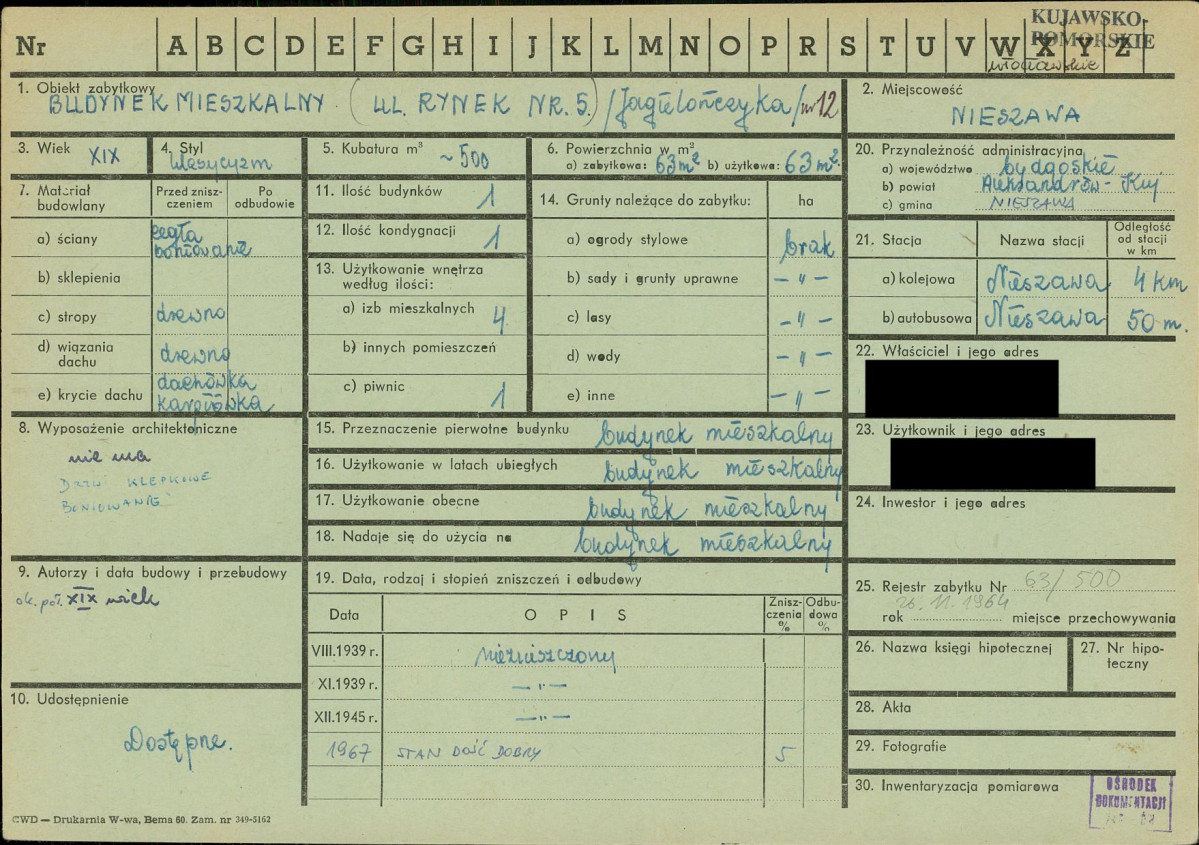 KUJAWSKO-
POMORSKIE
Nr A B C D E F G H I J K L M N O P R S T U V W X Y Z
włocławskie
1. Obiekt zabytkowy
BUDYNEK MIESZKALNY (UL. RYNEK NR. 5.) /Jagielończyka/ nr 12
2. Miejscowość
NIESZAWA
3. Wiek XIX
4. Styl
klasycyzm
5. Kubatura m³
~ 500
6. Powierzchnia w m²
a) zabytkowa: 63 m² b) użytkowa: 63 m².
20. Przynależność administracyjna
a) województwo bydgoskie
b) powiat Aleksandrów-Kuj
c) gmina NIESZAWA
7. Materiał budowlany
Przed zniszczeniem
Po odbudowie
a) ściany cegła
boniowane
b) sklepienia
c) stropy drewno
d) wiązania dachu drewno
e) krycie dachu dachówka
karpiówka
11. Ilość budynków 1
12. Ilość kondygnacji 1
13. Użytkowanie wnętrza
według ilości:
a) izb mieszkalnych 4
b) innych pomieszczeń
c) piwnic 1
14. Grunty należące do zabytku: ha
a) ogrody stylowe brak
b) sady i grunty uprawne — " —
c) lasy — " —
d) wody — " —
e) inne — " —
21. Stacja Nazwa stacji Odległość od stacji w km
a) kolejowa Nieszawa 4 km
b) autobusowa Nieszawa 50 m.
22. Właściciel i jego adres
23. Użytkownik i jego adres
24. Inwestor i jego adres
8. Wyposażenie architektoniczne
nie ma
DRZWI KLEPKOWE
BONIOWANIE
15. Przeznaczenie pierwotne budynku budynek mieszkalny
16. Użytkowanie w latach ubiegłych budynek mieszkalny
17. Użytkowanie obecne budynek mieszkalny
18. Nadaje się do użycia na budynek mieszkalny
9. Autorzy i data budowy i przebudowy
ok. poł. XIX wiek
19. Data, rodzaj i stopień zniszczeń i odbudowy
Data OPIS Zniszczenia % Odbudowa %
VIII.1939 r. niezniszczony
XI.1939 r. — " —
XII.1945 r. — " —
1967 STAN DOŚĆ DOBRY 5
10. Udostępnienie
Dostępne.
25. Rejestr zabytku Nr 63/500
26.11.1964
rok miejsce przechowywania
26. Nazwa księgi hipotecznej
27. Nr hipoteczny
28. Akta
29. Fotografie
30. Inwentaryzacja pomiarowa
OŚRODEK
DOKUMENTACJI
CWD — Drukarnia W-wa, Bema 60. Zam. nr 349-5162